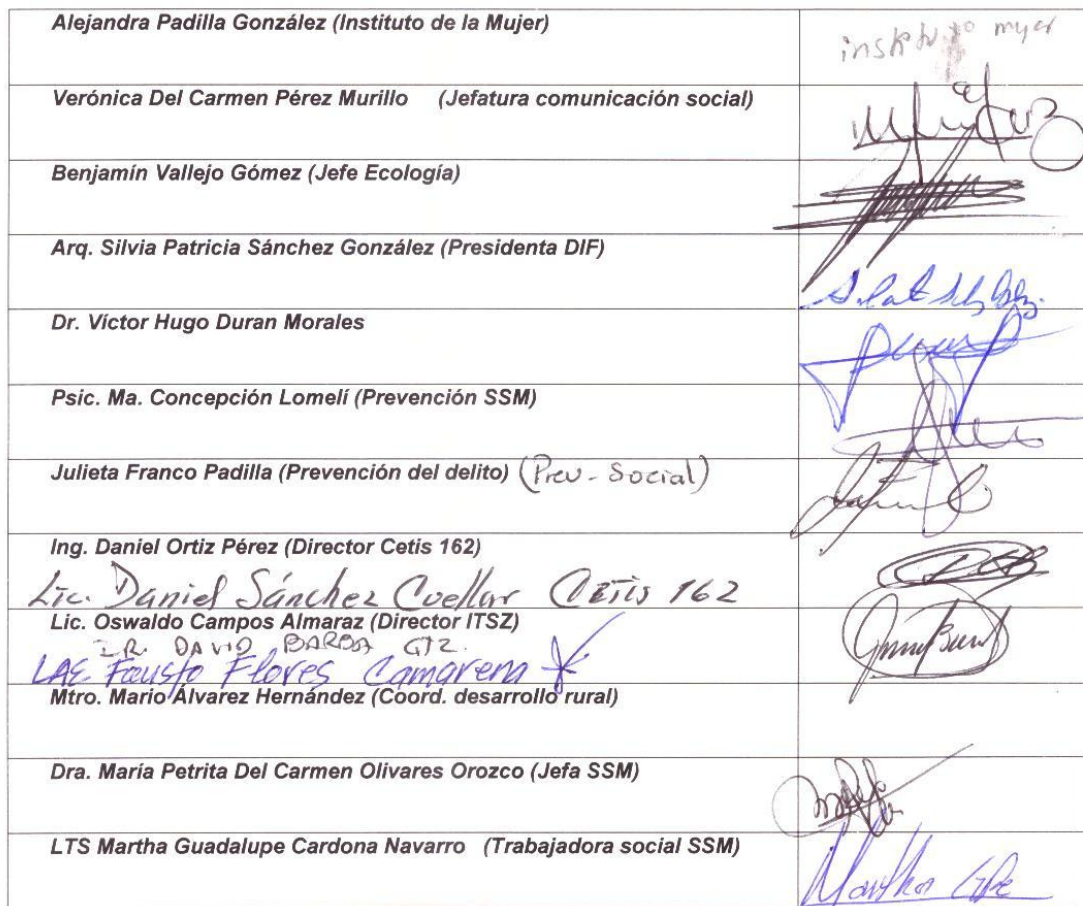 Alejandra Padilla González (Instituto de la Mujer)
instituto mujer
Verónica Del Carmen Pérez Murillo (Jefatura comunicación social)
Benjamín Vallejo Gómez (Jefe Ecología)
Arq. Silvia Patricia Sánchez González (Presidenta DIF)
Dr. Víctor Hugo Duran Morales
Psic. Ma. Concepción Lomelí (Prevención SSM)
Julieta Franco Padilla (Prevención del delito) (Prev-Social)
Ing. Daniel Ortiz Pérez (Director Cetis 162)
Lic. Daniel Sánchez Cuellar CETis 162
Lic. Oswaldo Campos Almaraz (Director ITSZ)
DAVID BARBA GTZ.
LAE Fausto Flores Camarena
Mtro. Mario Álvarez Hernández (Coord. desarrollo rural)
Dra. María Petrita Del Carmen Olivares Orozco (Jefa SSM)
LTS Martha Guadalupe Cardona Navarro (Trabajadora social SSM)
Martha Gpe